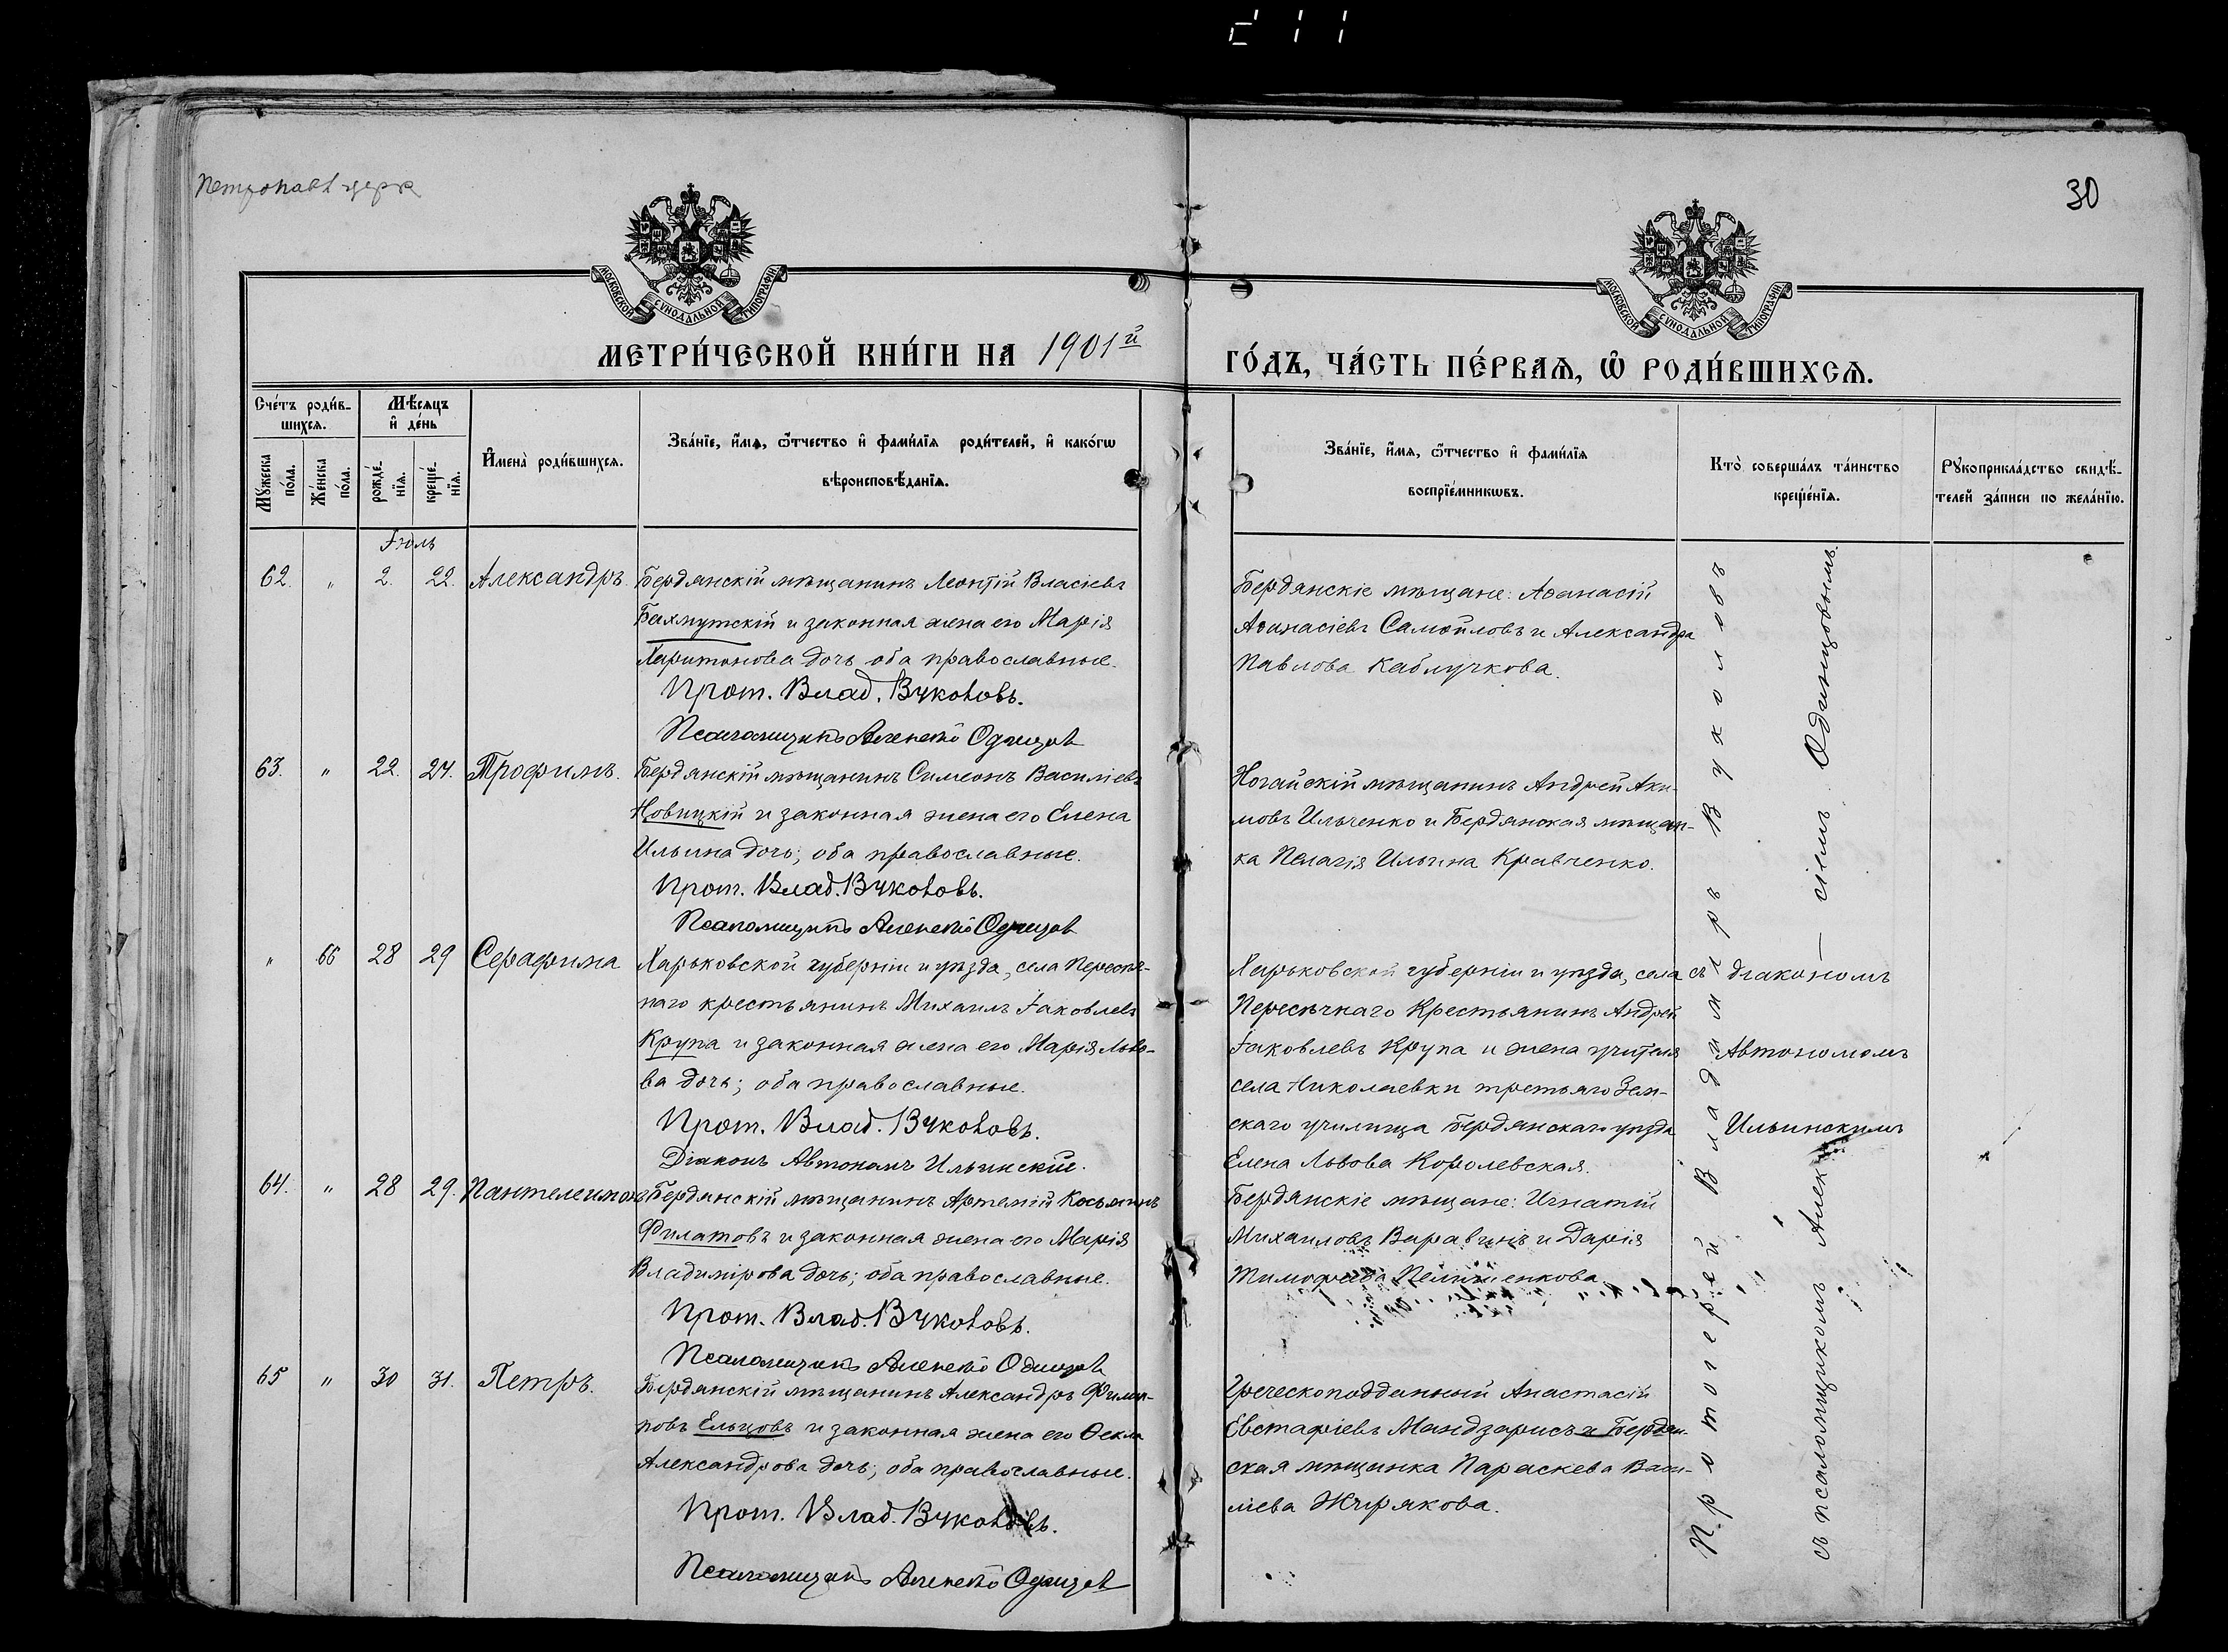 Петропавл церк
30
МОСКОВСКОЙ СУНОДАЛЬНОЙ ТИПОГРАФІИ
МОСКОВСКОЙ СУНОДАЛЬНОЙ ТИПОГРАФІИ
МЕТРИ́ЧЕСКОЙ КНИ́ГИ НА 1901й
ГО́ДЪ, ЧА́СТЬ ПЕ́РВАѦ, Ѽ РОДИ́ВШИХСѦ.
Сче́тъ роди́в-
шихсѧ.
Мѣ́сѧцъ
и҆ де́нь
Мꙋ́жеска
по́ла.
Же́нска
по́ла.
рожде́-
нїѧ.
креще́-
нїѧ.
И҆мена̀ роди́вшихсѧ.
Зва́нїе, и҆́мѧ, ѻ҆́тчество и҆ фами́лїѧ роди́телей, и҆ како́гѡ
вѣроисповѣ́данїѧ.
Зва́нїе, и҆́мѧ, ѻ҆́тчество и҆ фами́лїѧ
воспрїе́мникѡвъ.
Кто̀ соверша́лъ та́инство
креще́нїѧ.
Рꙋкоприкла́дство свидѣ́-
телей за́писи по жела́нїю.
Іюль
62. " 2. 22. Александръ. Бердянскій мѣщанинъ Леонтій Власіевъ
Бахмутскій и законная жена его Марія
Харитонова дочь оба православные.
Прот. Влад. Вуколовъ.
Псаломщикъ Алексѣй Одинцов
Бердянскіе мѣщане: Аѳанасій
Аѳанасіевъ Самойловъ и Александра
Павлова Каблучкова.
63. " 22. 24. Трофимъ. Бердянскій мѣщанинъ Симеонъ Василіевъ
Новицкій и законная жена его Елена
Ильина дочь; оба православные.
Прот. Влад. Вуколовъ.
Псаломщикъ Алексѣй Одинцов
Ногайскій мѣщанинъ Андрей Аки-
мовъ Ильченко и Бердянская мѣщан-
ка Пелагія Ильина Кравченко.
" 66 28 29 Серафима Харьковской губерніи и уѣзда, села Пересѣч-
наго крестьянинъ Михаилъ Іаковлевъ
Крупа и законная жена его Марія Льво-
ва дочь; оба православные.
Прот. Влад. Вуколовъ.
Діаконъ Автономъ Ильинскій.
Харьковской губерніи и уѣзда, села
Пересѣчнаго Крестьянинъ Андрей
Іаковлевъ Крупа и жена учителя
села Николаевки третьяго Зем-
скаго училища Бердянскаго уѣзда
Елена Львова Королевская.
64. " 28 29. Пантелеимонъ Бердянскій мѣщанинъ Артемій Косьминъ
Филатовъ и законная жена его Марія
Владимірова дочь; оба православные.
Прот. Влад. Вуколовъ.
Псаломщикъ Алексѣй Одинцов
Бердянскіе мѣщане: Игнатій
Михаиловъ Варавинъ и Дарія
Тимофеева
65 " 30 31. Петръ. Бердянскій мѣщанинъ Александръ Филип-
повъ Ельцовъ и законная жена его Ѳекла
Александрова дочь; оба православные.
Прот. Влад. Вуколовъ.
Псаломщикъ Алексѣй Одинцов
Греческоподданный Анастасій
Евстафіевъ Мандзарисъ и Бердян-
ская мѣщанка Параскева Васи-
ліева Жирякова.
Протоіерей Владиміръ Вуколовъ
съ діакономъ
Автономомъ
Ильинскимъ
съ псаломщикомъ Алек — сіемъ Одинцовымъ.